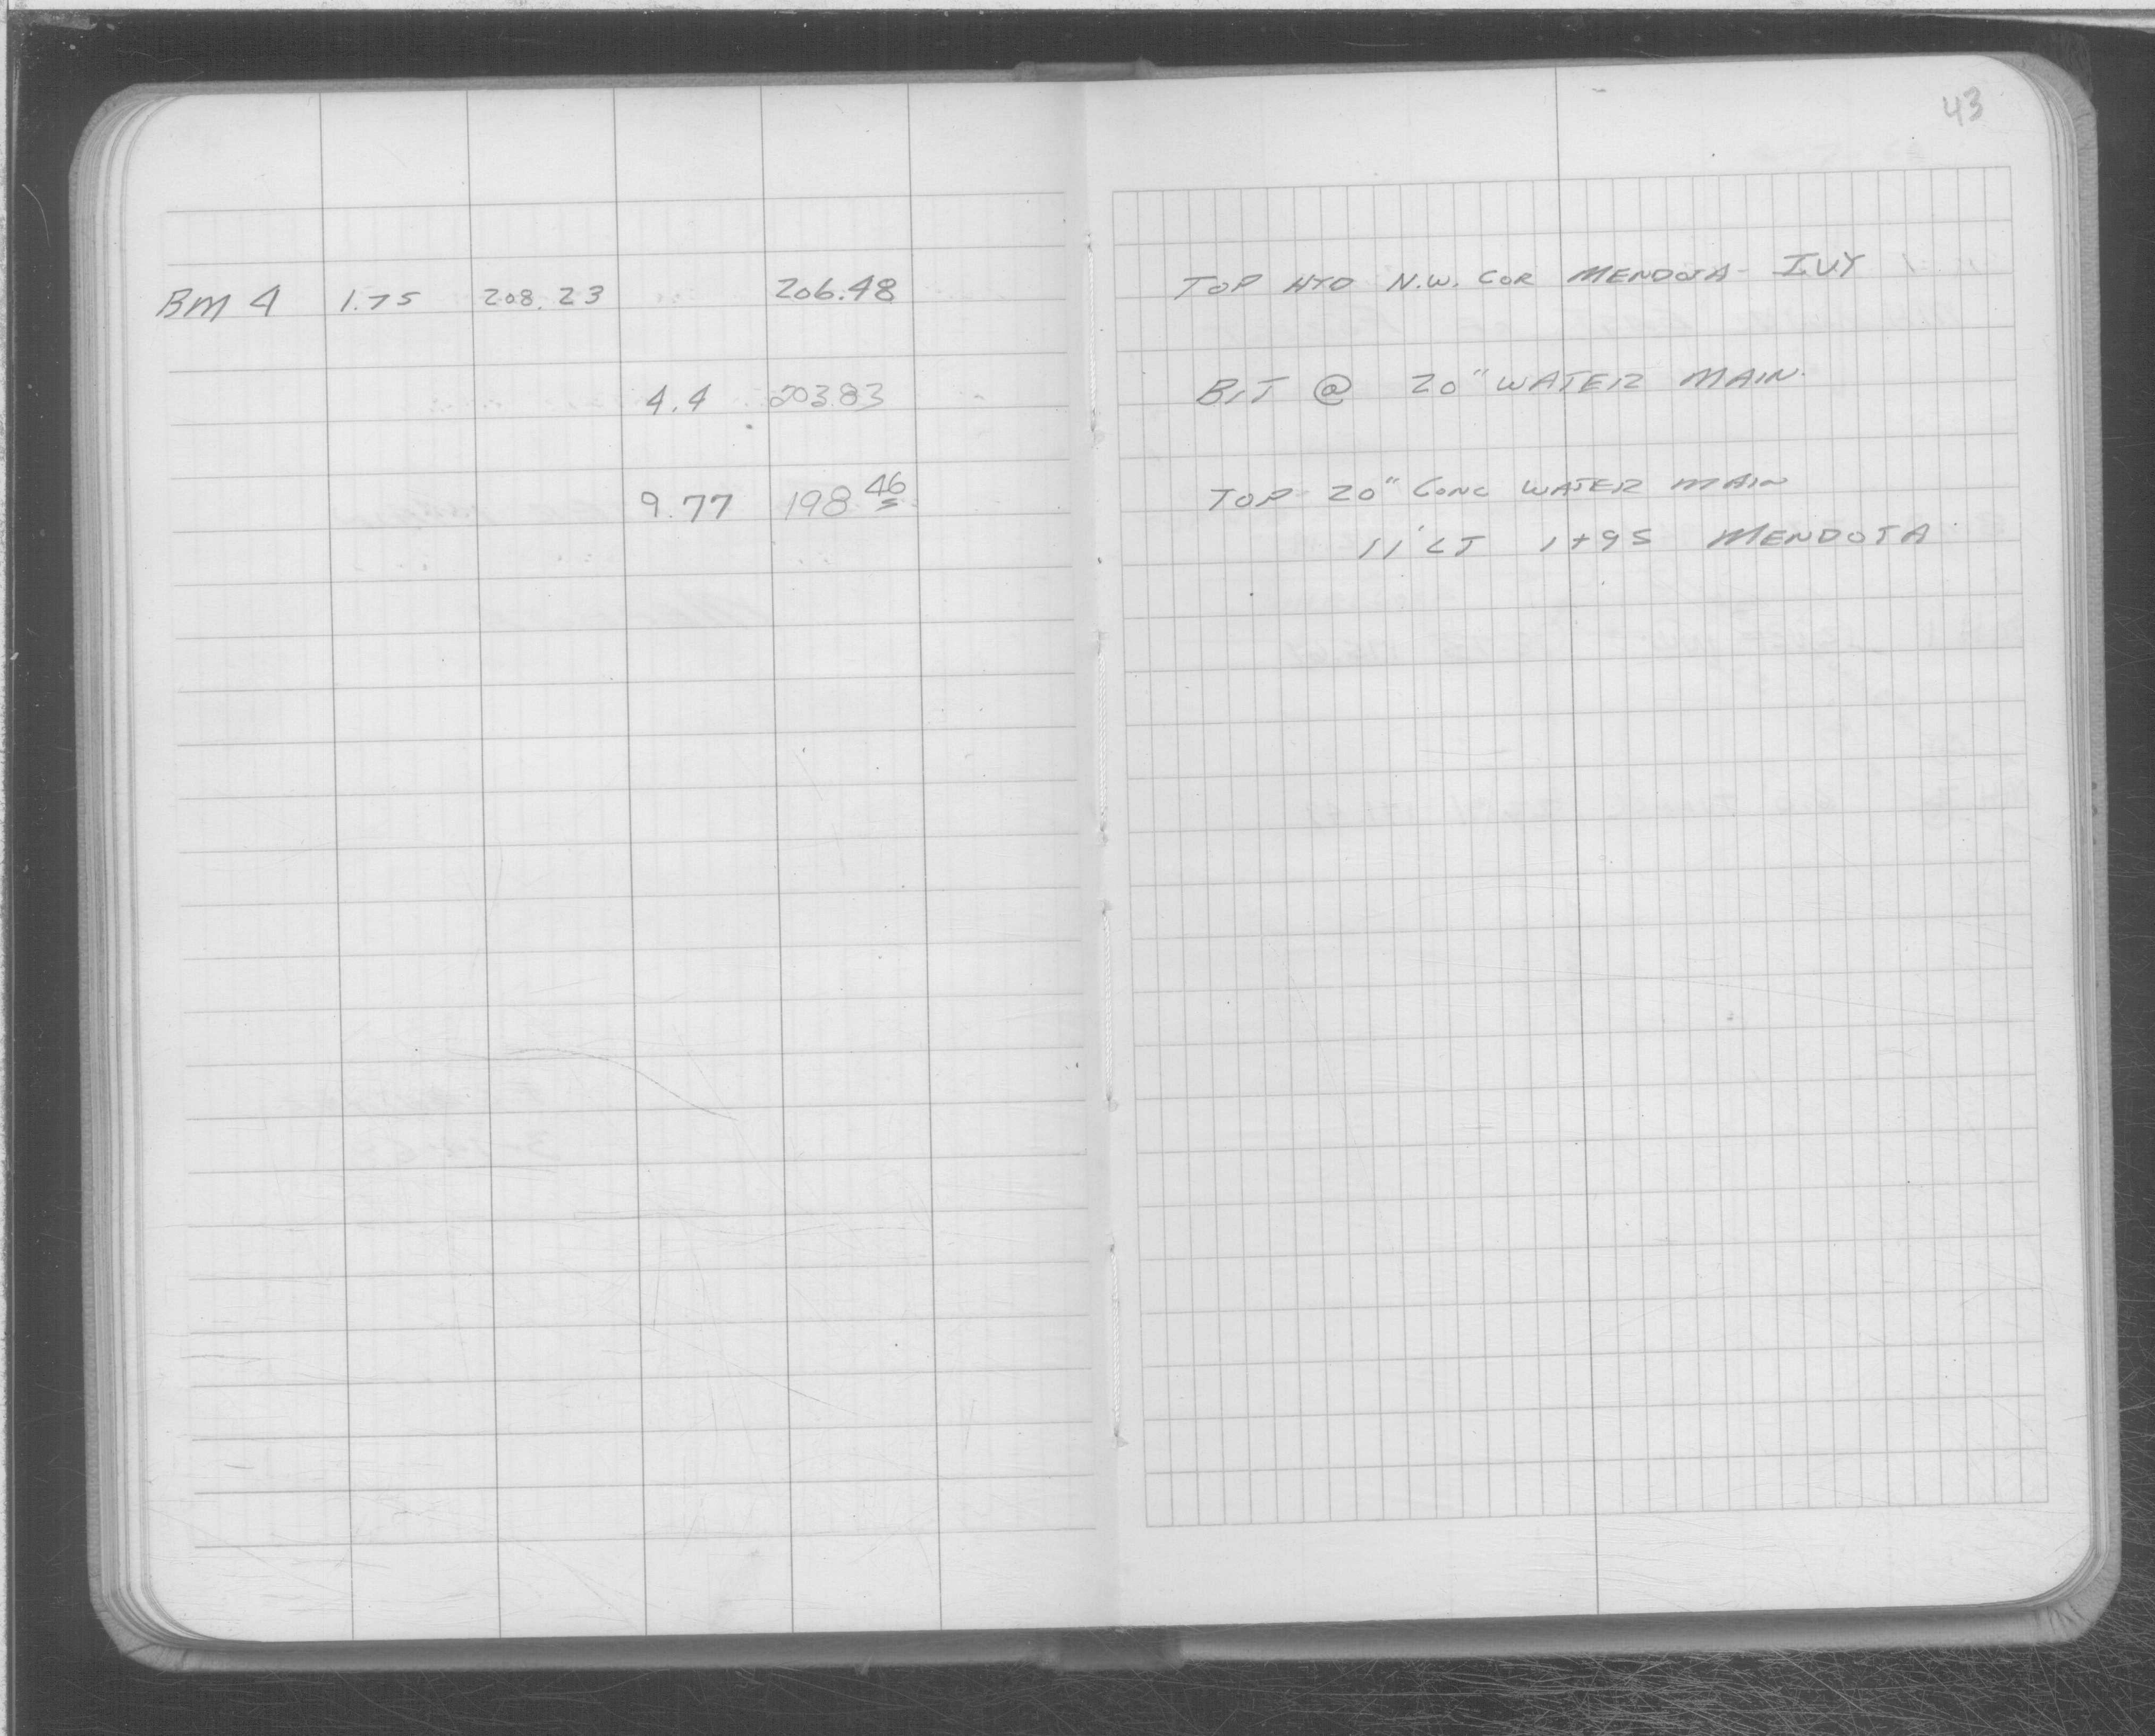 43
BM 4 1.75 208.23 206.48 TOP HYD N.W. COR MENDOTA - IVY
4.4 203.83 BIT @ 20" WATER MAIN.
9.77 198.46 TOP 20" CONC WATER MAIN
11' LT 1+95 MENDOTA